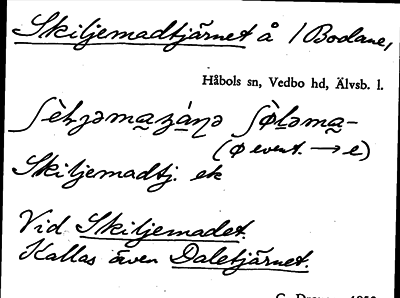 Skiljemadtjärnet å /Bodane,
Håbols sn, Vedbo hd, Älvsb. l.
(ø event. → e)
Skiljemadtj. ek
Vid Skiljemadet.
Kallas även Daletjärnet.